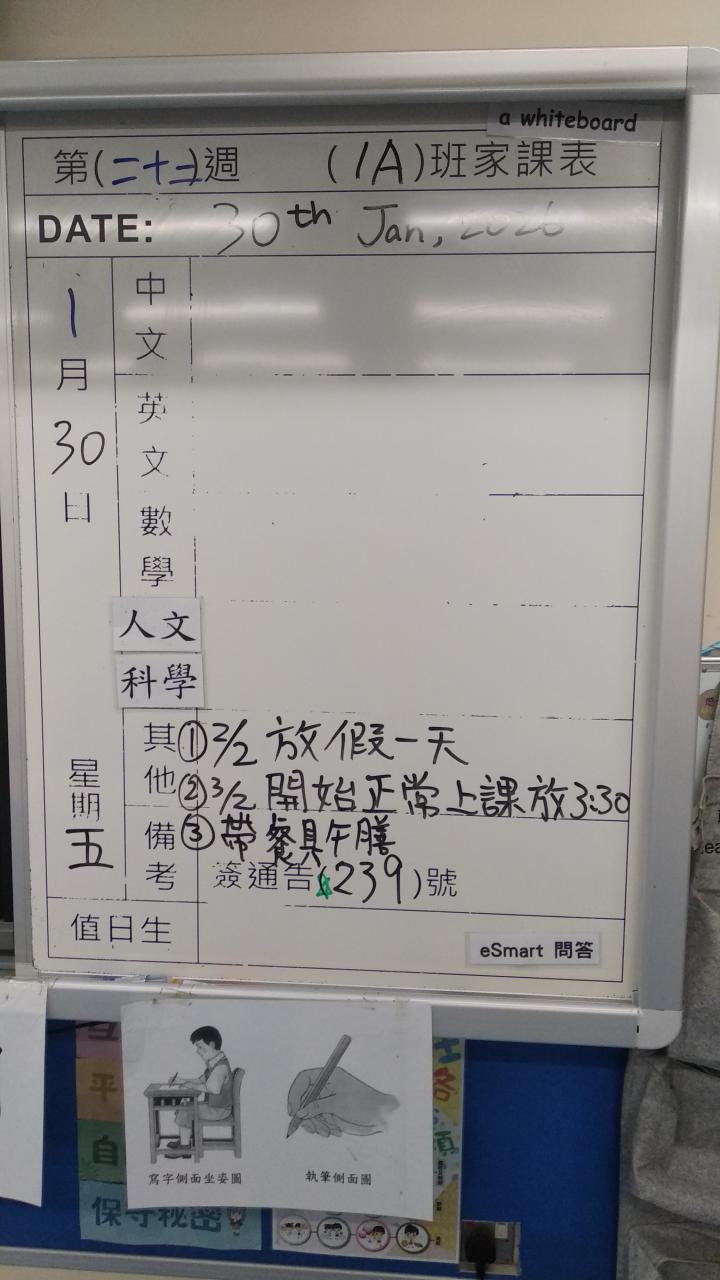 a whiteboard
第(二十二)週 (1A)班家課表
DATE: 30th Jan, 2026
1月30日
星期五
中文
英文
數學
人文
科學
其他
①2/2 放假一天
②3/2 開始正常上課放3:30
備考
③帶餐具午膳
簽通告(239)號
值日生
eSmart 問答
寫字側面坐姿圖
執筆側面圖
平
自
保守秘密